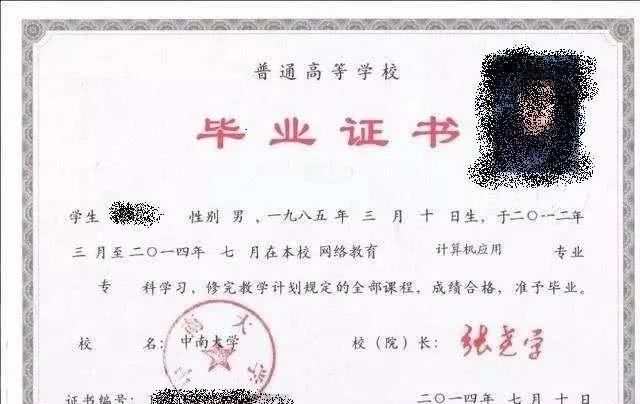 普通高等学校
毕业证书
学生 性别 男 ，一九八五年 三 月 十 日生，于二〇一二年
三 月至二〇一四年 七 月在本校 网络教育 计算机应用 专业
专 科学习，修完教学计划规定的全部课程，成绩合格，准予毕业。
校 名：中南大学 校（院）长：张尧学
证书编号： 二〇一四年 七 月 十 日